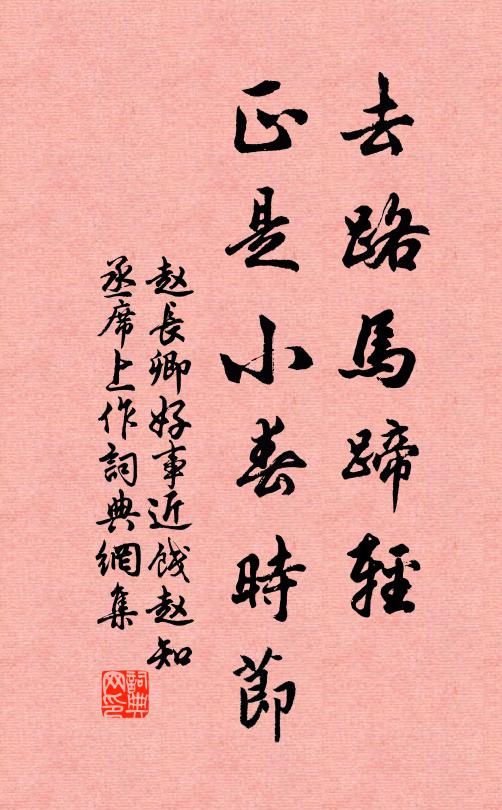 去路馬蹄輕
正是小春時節
赵長卿好事近餞赵知
丞席上作詞典網集
詞典
网印